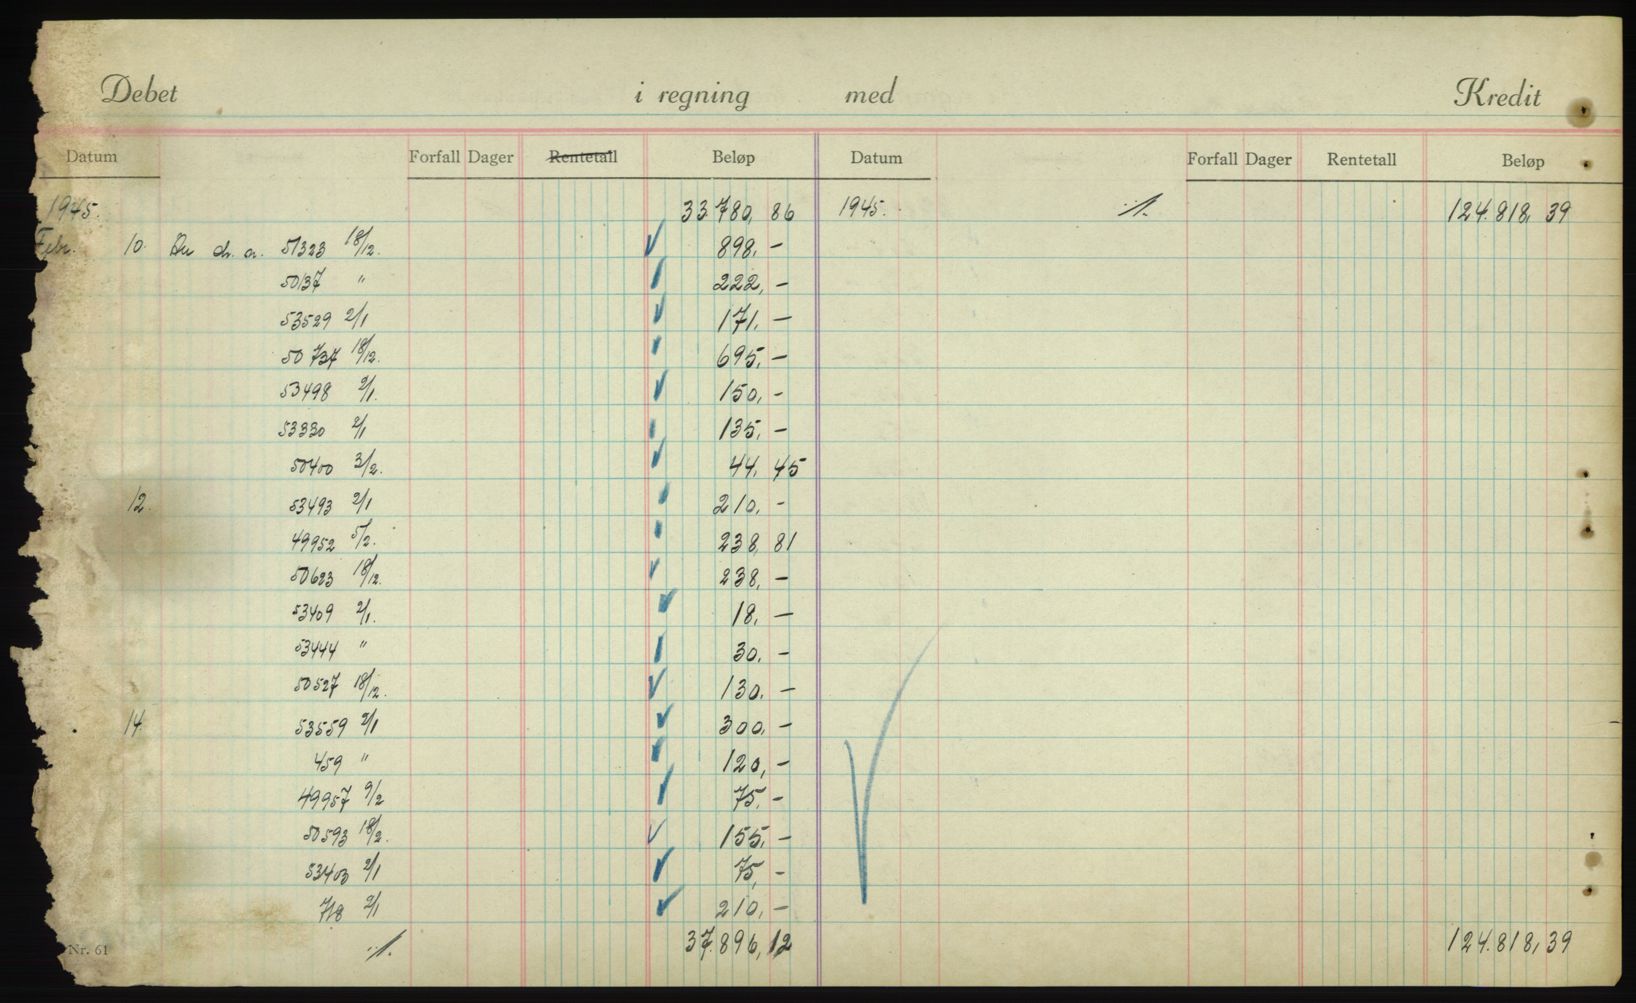 Debet i regning med Kredit
Datum Forfall Dager Rentetall Beløp Datum Forfall Dager Rentetall Beløp
1945. 33.780, 86 1945. ·/. 124.818, 39
Febr. 10. Du ch. a. 51323 18/12. 898, -
50137 " 222, -
53529 2/1 171. -
50737 18/12. 695, -
53498 2/1. 150, -
53330 2/1 135, -
50400 3/2. 44, 45
12. 53493 2/1 210, -
49952 5/2. 238, 81
50623 18/12. 238, -
53409 2/1. 18, -
53444 " 30, -
50527 18/12. 130, -
14. 53559 2/1 300, -
459 " 120, -
49957 9/2 75, -
50593 18/12. 155, -
53403 2/1 75, -
718 2/1 210, -
Nr. 61 ·/. 37.896, 12 124.818, 39